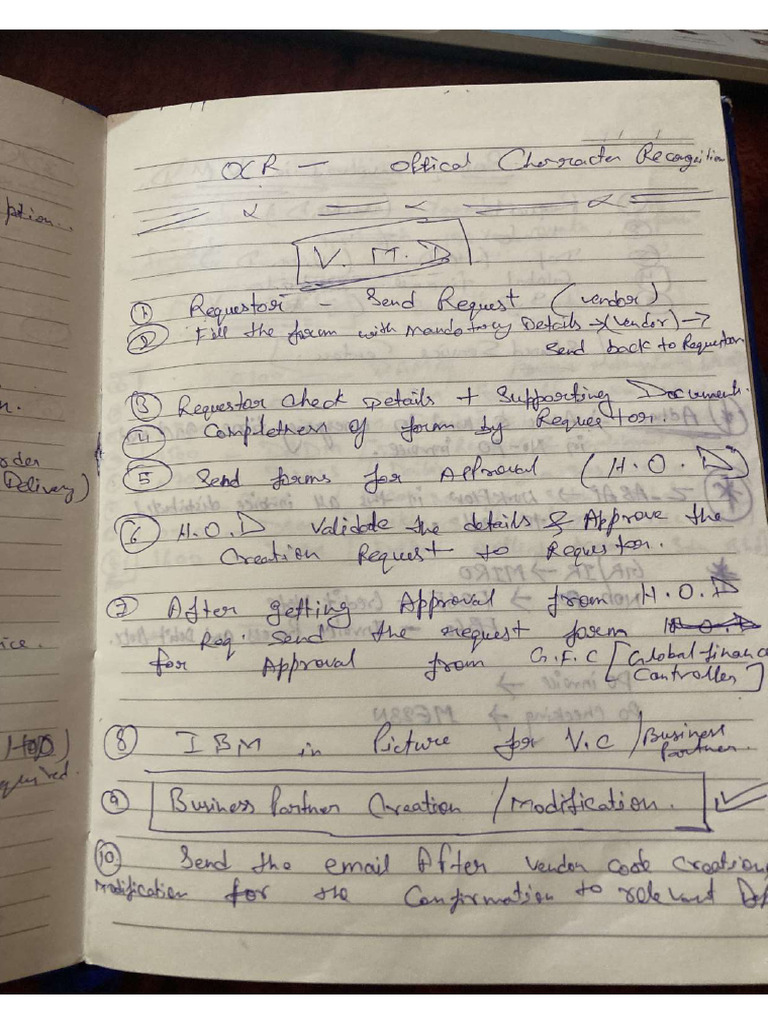 ption..
n.
order
Delivery)
ice.
HOD)
quired.
OCR — Optical Character Recognition
V. M. D
① Requestor - Send Request (vendor)
② Fill the form with Mandatory Details → (vendor) →
Send back to Requestor
③ Requestor Check Details + Supporting Document.
④ Completness of form by Requestor.
⑤ Send forms for Approval (H.O.D)
⑥ H.O.D Validate the details & Approve the
Creation Request to Requestor.
⑦ After getting Approval from H.O.D
Req. Send the request form H.O.D
for Approval from G.F.C [Global finance
Controller]
⑧ IBM in Picture for V.C / Business
Partner.
⑨ Business Partner Creation / Modification.
⑩ Send the email After vendor code creation,
Modification for the Confirmation to relevant